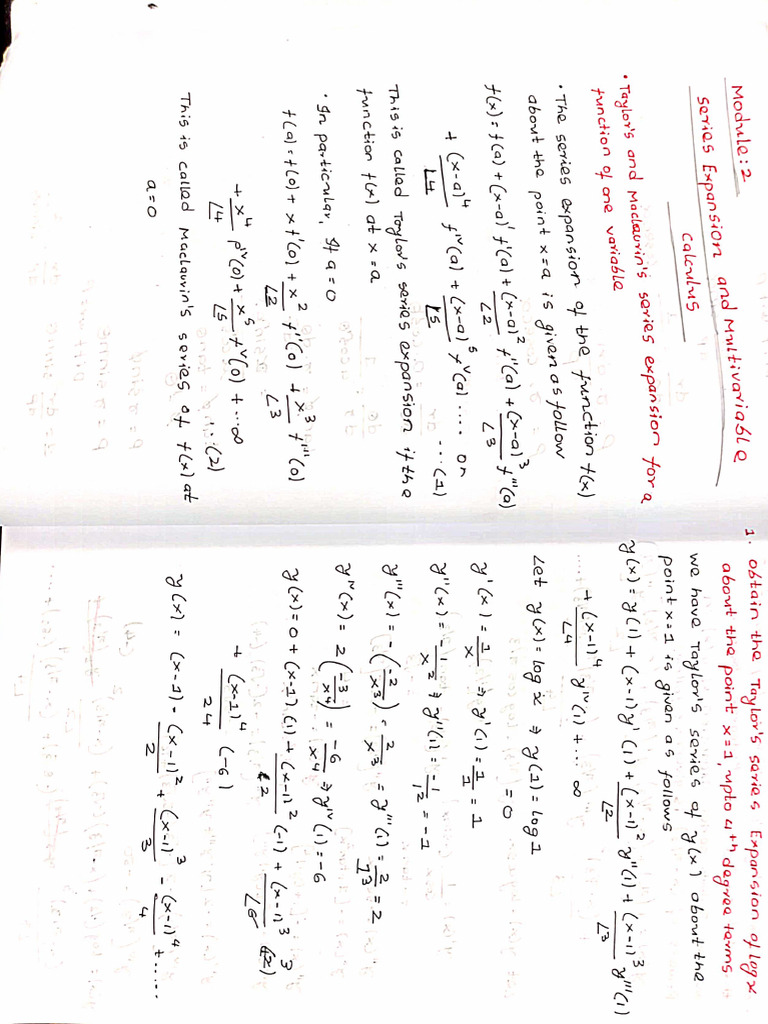 Module:2
Series Expansion and Multivariable
Calculus
• Taylor's and Maclaurin's series expansion for a
function of one variable
• The series expansion of the function f(x)
about the point x=a is given as follow
f(x) = f(a) + (x-a)' f'(a) + (x-a)²/∠2 f''(a) + (x-a)³/∠3 f'''(a)
+ (x-a)⁴/∠4 fⁱᵛ(a) + (x-a)⁵/∠5 fᵛ(a) ..... or
...(1)
This is called Taylor's series expansion if the
function f(x) at x=a
• In particular, If a=0
f(a) = f(0) + x f'(0) + x²/∠2 f''(0) + x³/∠3 f'''(0)
+ x⁴/∠4 fⁱᵛ(0) + x⁵/∠5 fᵛ(0) + ... ∞
...(2)
This is called Maclaurin's series of f(x) at
a=0
1. Obtain the Taylor's series Expansion of log x
about the point x=1, upto 4th degree terms
we have Taylor's series of y(x) about the
point x=1 is given as follows
y(x) = y(1) + (x-1)y'(1) + (x-1)²/∠2 y''(1) + (x-1)³/∠3 y'''(1)
+ (x-1)⁴/∠4 yⁱᵛ(1) + ... ∞
Let y(x) = log x ⇒ y(1) = log 1
= 0
y'(x) = 1/x ⇒ y'(1) = 1/1 = 1
y''(x) = -1/x² ⇒ y''(1) = -1/1² = -1
y'''(x) = -(-2/x³) = 2/x³ = y'''(1) = 2/1³ = 2
yⁱᵛ(x) = 2(-3/x⁴) = -6/x⁴ ⇒ yⁱᵛ(1) = -6
y(x) = 0 + (x-1)(1) + (x-1)²/2 (-1) + (x-1)³/∠6 (2)
+ (x-1)⁴/24 (-6)
y(x) = (x-1) - (x-1)²/2 + (x-1)³/3 - (x-1)⁴/4 + .....